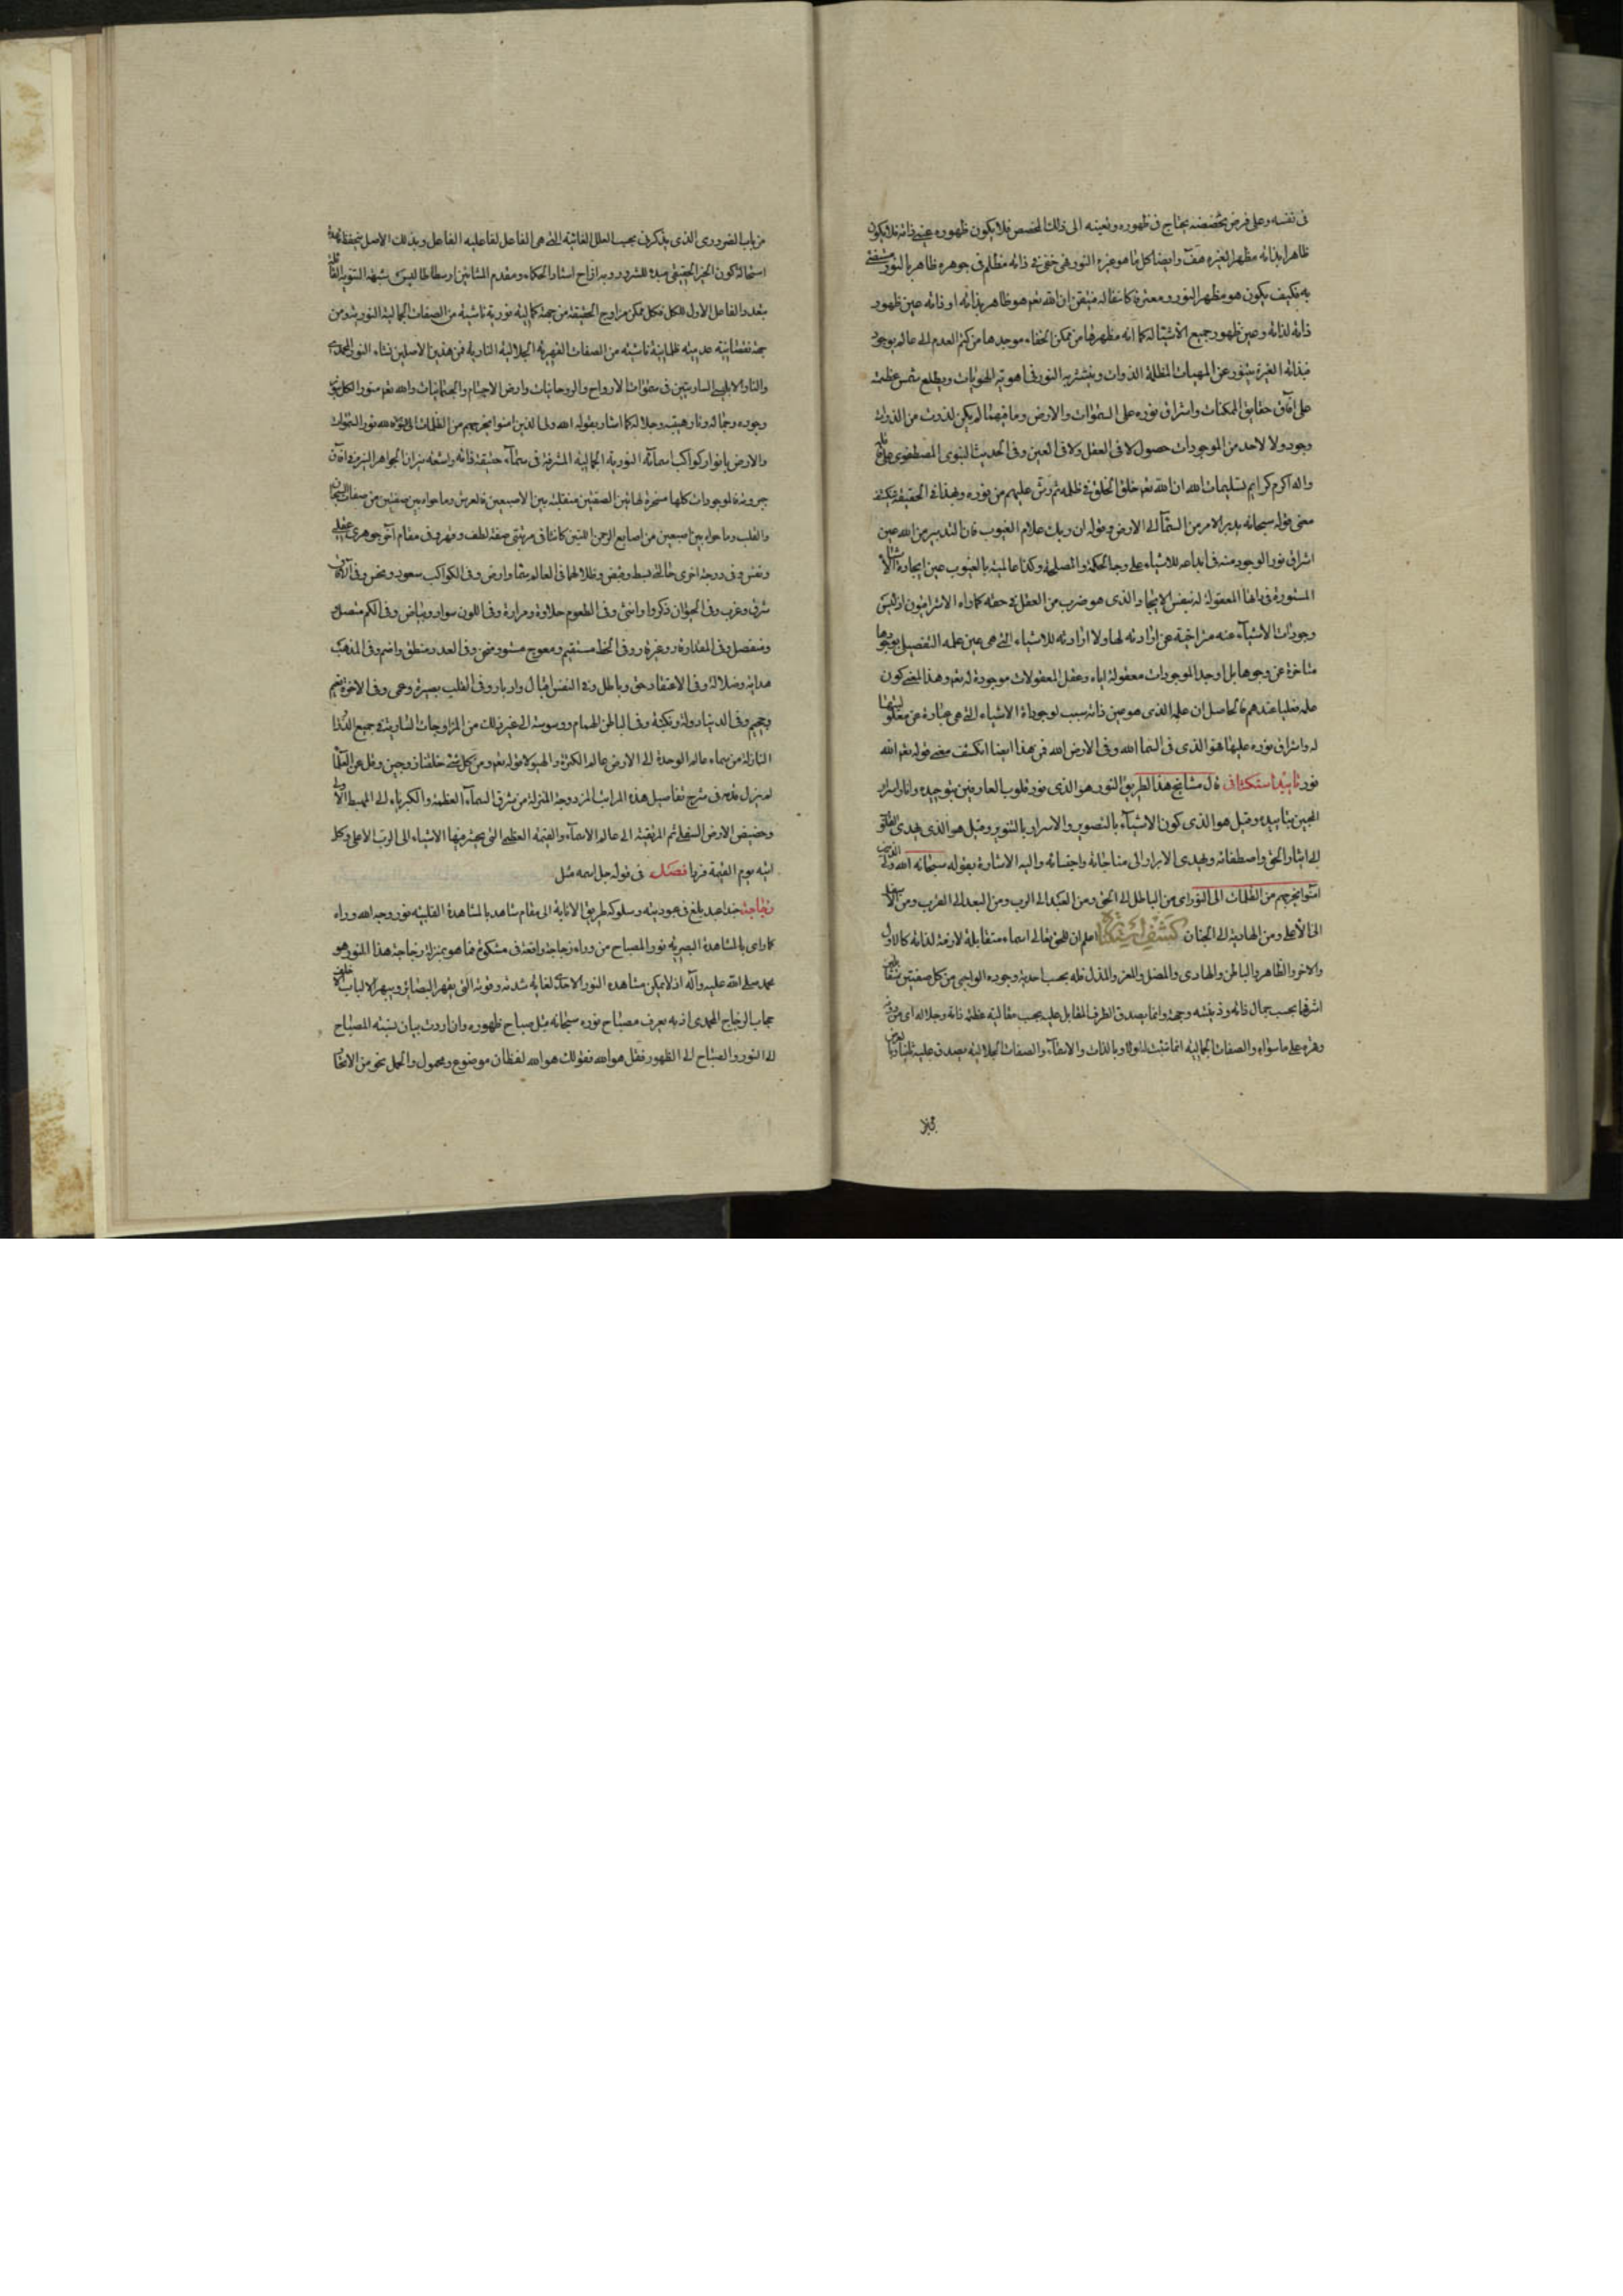 فى نفسه وعلى فرض تخصصه يحتاج فى ظهوره وتعينه الى ذلك المخصص فلا يكون ظهوره عين ذاته فلا يكون
ظاهرا بذاته مظهرا لغيره هف وايضا كل ما هو غيره النور فهى خفى فى ذاته مظلم فى جوهره ظاهر بالنور
به فكيف يكون هو مظهر النور ومعتبره كاشفا له فتيقن ان الله تعم هو ظاهر بذاته او ذاته عين ظهور
ذاته لذاته وعين ظهور جميع الأشيآء له كما انه مظهرها من ممكن الخفاء موجدها من كتم العدم الى عالم
فبذاته النيرة يتنور عن المهيات المظلمة الذوات وينتشر به النور فى اهوية الهويات ويطلع شمس عظمته
على آفاق حقايق الممكنات واشراق نوره على السموات والارض وما فيهما لم يكن لذوت من الذوات
وجود ولا لاحد من الموجودات حصول لا فى العقل ولا فى العين وفى الحديث النبوى المصطفوى
واله اكرم كرايم تسليمات الله ان الله تعم خلق الخلق فى ظلمه ثم رش عليهم من نوره وبهذا فى الحقيقة
معنى قوله سبحانه يدبر الامر من السمآ الى الارض وقوله ان ربك علام الغيوب فان التدبير من الله عين
اشراق نور الوجود منه فى ابداعه للاشياء على وجه الحكمة والمصلحة وكذا عالميته بالغيوب عين ايجاده
المستورة فى ذاتها المعقولة له بنفس الايجاد الذى هو ضرب من العقل فى حقه كما راه الاشراقيون اذ ليس
وجودات الاشيآء عنه متراخية عن ارادته لها ولا ارادته للاشياء التى هى عين علمه التفصيلى
متاخرة عن وجوها بل اوجد الموجودات معقولة اياه وعقل المعقولات موجودة له تعم وهذا المعنى كون
علمه فعليا عندهم فالحاصل ان علمه الذى هو عين ذاته سبب لوجوداة الاشياء التى هى عبارة عن
له واشراق نوره عليها هو الذى فى السما الله وفى الارض الله فمن هذا ايضا انكشف معنى قوله تعم الله
نور تاييد استكشافى قال مشايخ هذا الطريق النور هو الذى نور قلوب العارفين بتوحيده وانار اسرار
المحبين بتاييده وقيل هو الذى كون الاشيآء بالتصوير والاسرار بالتنوير وقيل هو الذى يهدى القلوب
الى ايثار الحق واصطفائه ويهدى الاسرار الى مناجاته واجتبائه واليه الاشارة بقوله سبحانه الله ولى الذين
امنوا يخرجهم من الظلمات الى النور اى من الباطل الى الحق ومن العبد الى الرب ومن البعد الى القرب ومن الاسفل
الى الاعلى ومن الهاوية الى الجنان كشف اعلم ان للحق تعالى اسماء متقابلة لازمة لذاته كالاول
والاخر والظاهر والباطن والهادى والمضل والمعز والمذل فله بحسب احدية وجوده الواجبى من كل صفتين متقابلتين
اشرفها بحسب جمال ذاته وانما يصدق الطرف المقابل عليه بحسب مقاليته عظمة ذاته وجلاله اى
وقهره على ما سواه والصفات الجمالية انما تثبت له اولا وبالذات والصفات الجلالية يصدق عليه ثانيا
من باب الضرورى الذى يذكر فى بحيث العلل الغائية التى هى الفاعل لفاعليه الفاعل وبذلك الاصل
استحالة كون الخير الحقيقى مبدء للشرور وبه ازاح استاد الحكماء ومقدم المشائين ارسطاطاليس شبهه الثنويه
بتعدد الفاعل الاول للكل فكل ممكن مزاوج الحقيقة من جهة كمالية نورية ناشية من الصفات الجمالية النورية ومن
جهة نقصانية عدمية ظلمانية ناشية من الصفات القهرية الجلالية النارية فمن هذين الاصلين نشاء النور المحمدى
والنار الابليسى الساريتين فى سموات الارواح والروحانيات وارض الاجسام والجسمانيات والله تعم منور الكل
وجوده وجماله ونار هيبته وجلاله كما اشار بقوله الله ولى الذين امنوا يخرجهم من الظلمات الى النور الله نور السموات
والارض بانوار كواكب اسمآئه النورية الجمالية المشرقة فى سمآء حقيقة ذاته واشعة نيران الجواهر النيره
جبروته فالموجودات كلها مسخرة لهاتين الصفتين منقلبة بين الاصبعين فالعرش وما حواه بين صفتين من صفات
والقلب وما حواه بين اصبعين من اصابع الرحمن اللتين كانتا فى مرتبتى صفة لطف وقهر وفى مقام آخر جوهرى عقلى
ونفس وفى درجة اخرى حالتى بسط وقبض وظلالهما فى العالم سما وارض وفى الكواكب سعود ونحس وفى
شرق وغرب وفى الحيوان ذكر وانثى وفى الطعوم حلاوة ومرارة وفى اللون سواد وبياض وفى الكم متصل و
ومنفصل وفى المقدارة وغيرة وفى الخط مستقيم ومعوج وفى العدد منطق واصم وفى المذهب
هداية وضلالة وفى الاعتقاد حق وباطل وفى النفس اقبال وادبار وفى القلب بصيرة وعمى وفى الاخرة نعيم
وجحيم وفى الدنيا دولة ونكبة وفى الباطن الهام ووسوسة الى غير ذلك من المزاوجات السارية فى جميع الذوات
النازلة من سماء عالم الوحدة الى الارض عالم الكثرة والهيولا قوله تعم ومن كل شئ خلقنا زوجين
لم يزل قدم فى شرح تفاصيل هذه المراتب المزدوجة المنزلة من شرق السمآء العظمة والكبرياء الى المهبط
وحضيض الارض السفلى ثم المرتقية الى عالم الاسمآء والقيمة العظمى التى يحشر فيها الاشياء الى الرب الاعلى وكلهم
اتيه يوم القيمة فردا فصل فى قوله جل اسمه مثل
زجاجة عبد بلغ فى عبوديته وسلوكه طريق الانابة الى مقام شاهد بالمشاهدة القلبية نور وجه الله وراه
كما راى بالمشاهدة البصرية نور المصباح من وراء زجاجة واقعة فى مشكوة فما هو بمنزلة زجاجة هذا النور هو
محمد صلى الله عليه وآله اذ لا يمكن مشاهدة النور الاحدى لغاية شدته وقوته التى يقهر البصائر ويبهر الالباب
حجاب الزجاج المحمدى اذ به يعرف مصباح نوره سبحانه مثل صباح ظهوره وان اردت بيان نسبته المصباح
الى النور والصباح الى الظهور فقل هو الله فقولك هو الله لفظان موضوع ومحمول والحمل نحو من الاتحاد